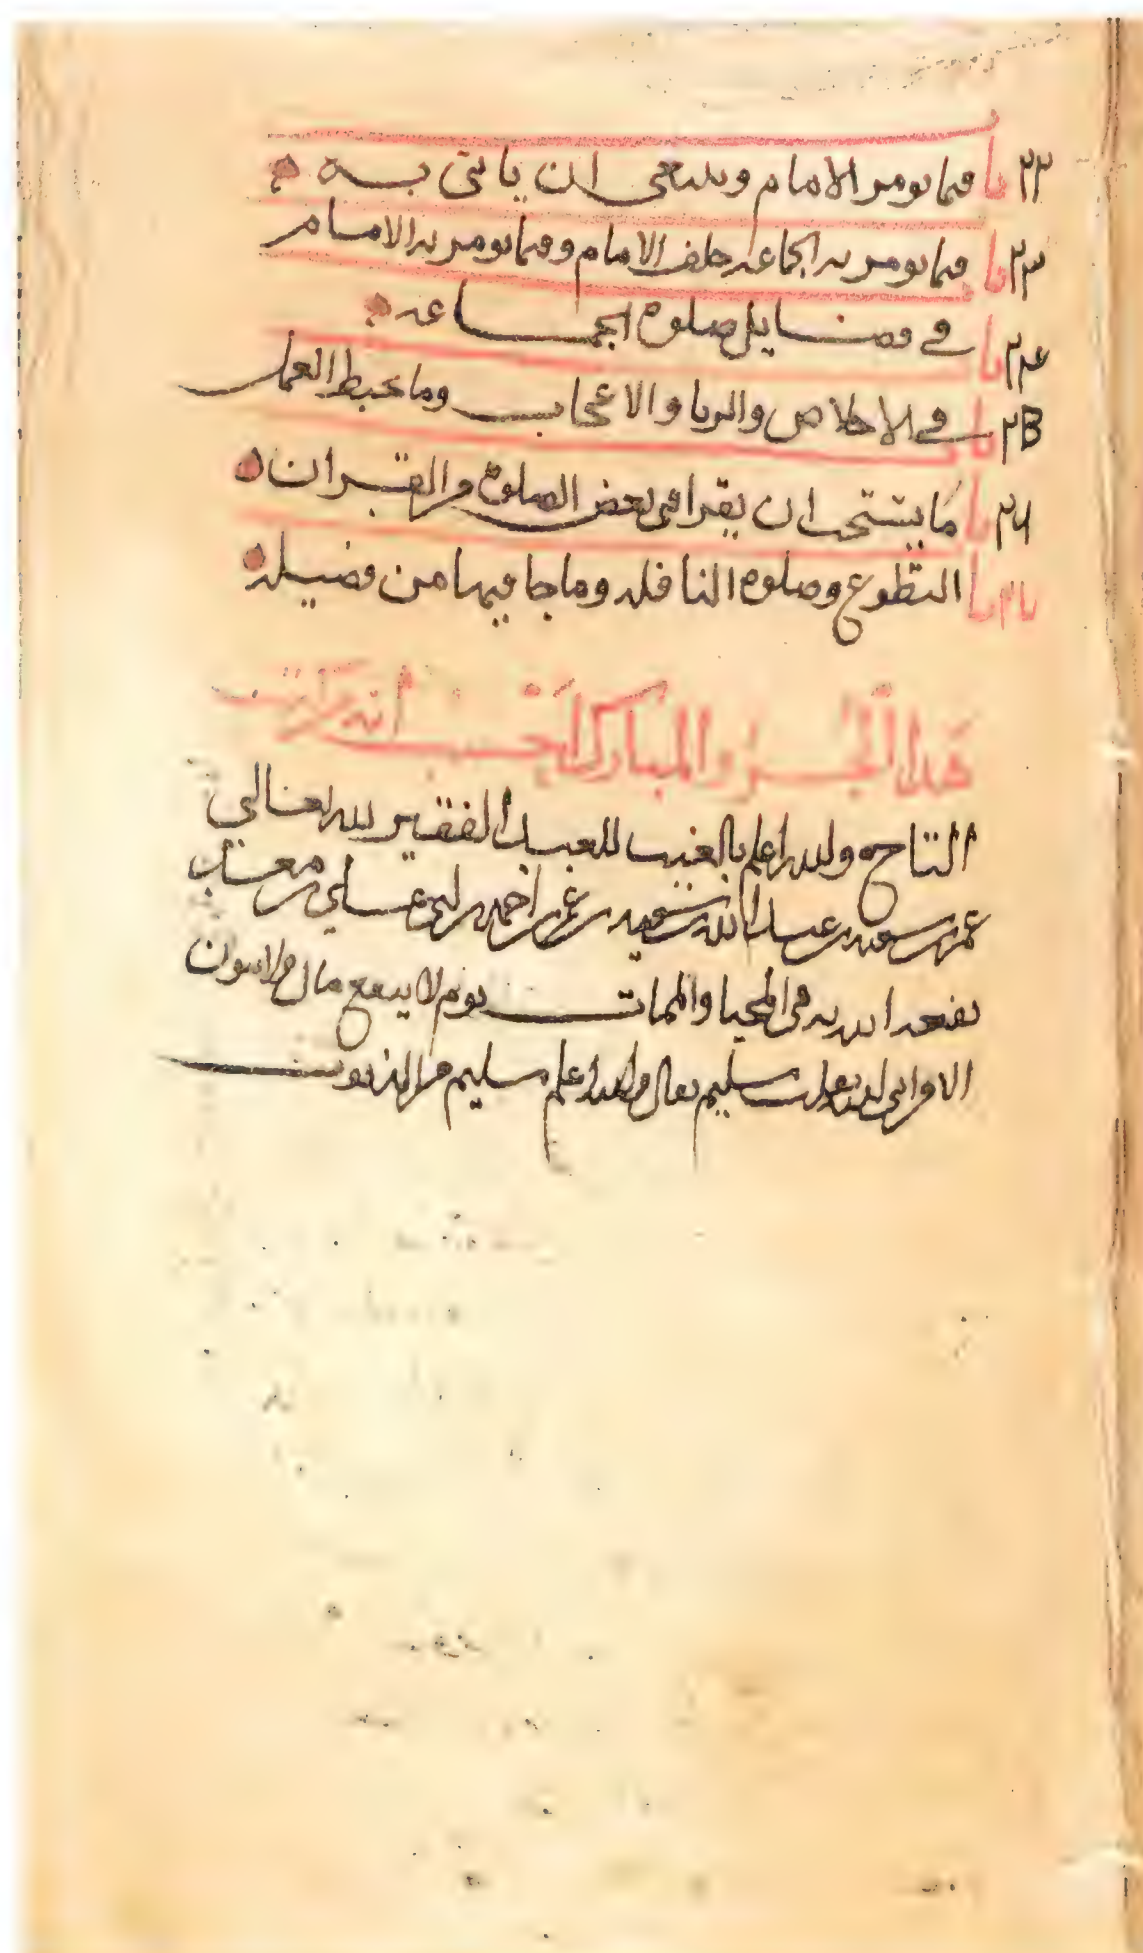 ٢٢ با فيما يومر الامام وينبغي ان ياتى به
٢٣ با فيما يومر به الجماعه خلف الامام وفيما يومر به الامام
٢٤ با في فضايل صلوة الجماعه
٢٥ با في الاخلاص والريا والاعجاب وما يحبط العمل
٢٦ با ما يستحب ان يقرا في بعض الصلوة من القران
٢٧ با التطوع وصلوة النافله وما جا فيها من فضيله
هذا الجزو المبارك احسب انه
التاح والله اعلم بالغيب للعبد الفقير لله تعالى
عمر بن سعيد بن عبد الله بن سعيد بن عمر بن احمد بن ابي علي بن معد
نفعه الله به في المحيا والممات يوم لا ينفع مال ولا بنون
الا من اتى الله بقلب سليم سليم من الذنوب